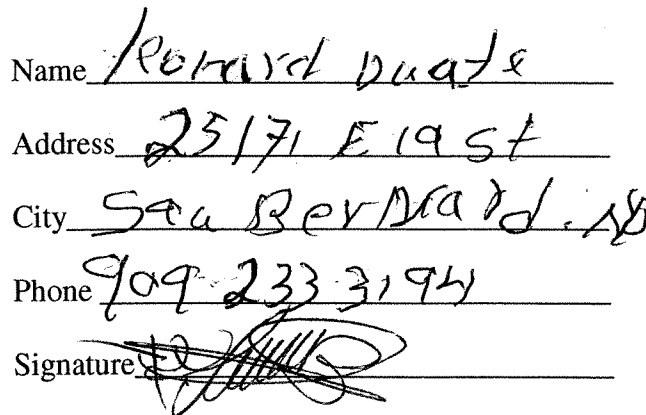 Name Leonard Duate
Address 25171 E 19 St
City San Bernard.no
Phone 909 233 3194
Signature